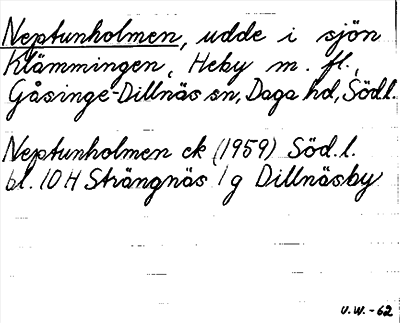 Neptunholmen, udde i sjön
Klämmingen, Heby m. fl.,
Gåsinge-Dillnäs sn, Daga hd, Södl.
Neptunholmen ek (1959) Söd. l.
bl. 10 H Strängnäs 1 g Dillnäsby
U.W.-62